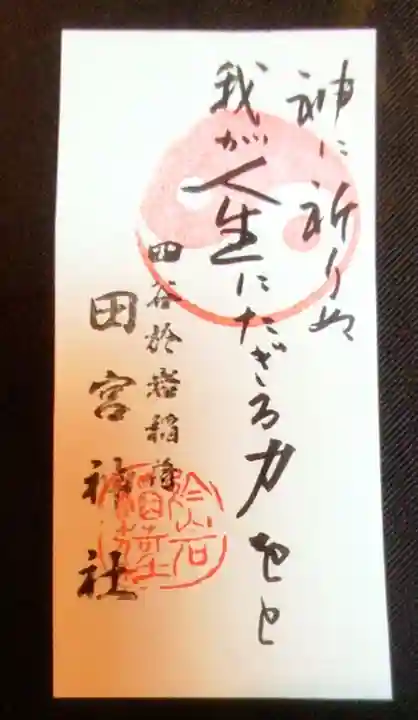 神に祈りぬ
我が人生にたぎる力をと
四谷於岩稲荷
田宮神社